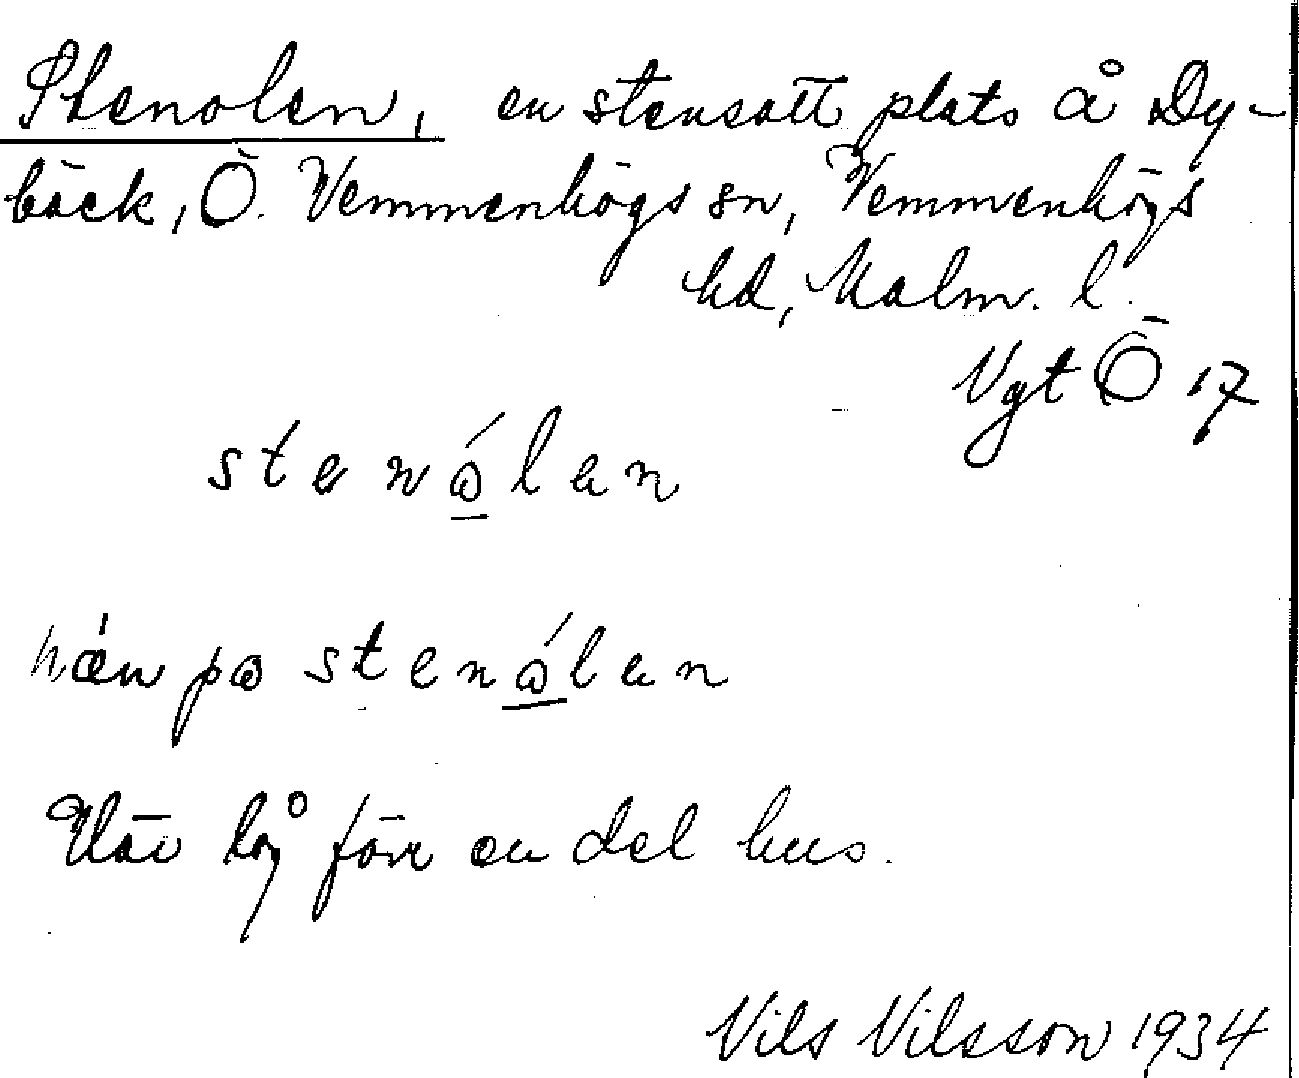 Stenolen, en stensatt plats å Dy-
bäck, Ö. Vemmenhögs sn, Vemmenhögs
hd, Malm. l.
Vgt Ö 17
stenǫ́len
hǽn på stenǫ́len
Här låg förr en del hus.
Nils Nilsson 1934